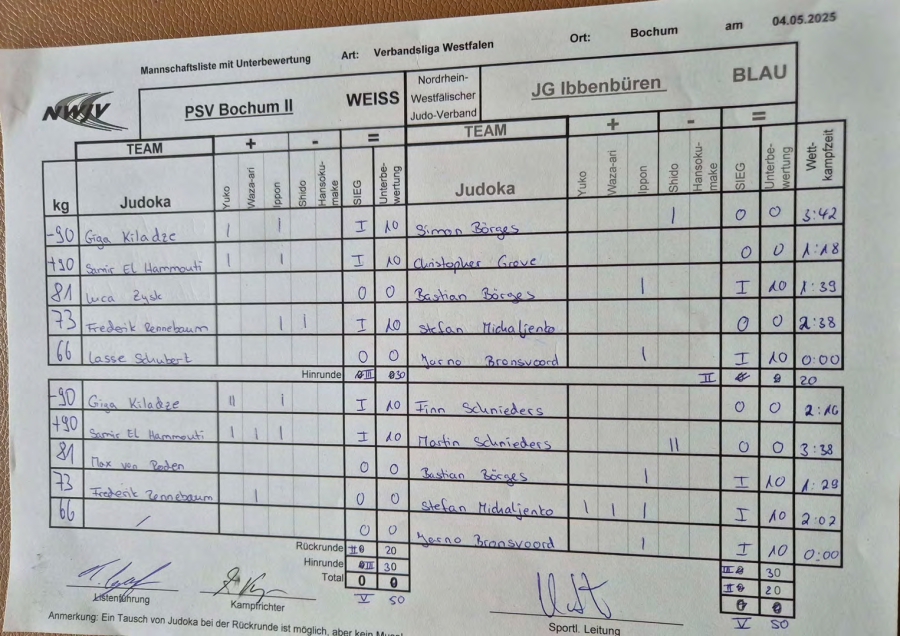 Mannschaftsliste mit Unterbewertung Art: Verbandsliga Westfalen Ort: Bochum am 04.05.2025
NWJV PSV Bochum II WEISS Nordrhein-Westfälischer Judo-Verband JG Ibbenbüren BLAU
TEAM + - = TEAM + - =
kg Judoka Yuko Waza-ari Ippon Shido Hansoku-make SIEG Unterbe-wertung Judoka Yuko Waza-ari Ippon Shido Hansoku-make SIEG Unterbe-wertung Wett-kampfzeit
-90 Giga Kiladze I I I 10 Simon Börges I 0 0 3:42
+90 Samir El Hammouti I I I 10 Christopher Greve 0 0 1:18
81 Luca Zysk 0 0 Bastian Börges I I 10 1:39
73 Frederik Rennebaum I I I 10 Stefan Michaljenko 0 0 2:38
66 Lasse Schubert 0 0 Jarno Bronsvoord I I 10 0:00
Hinrunde III 30 II 20
-90 Giga Kiladze II I I 10 Finn Schnieders 0 0 2:16
+90 Samir El Hammouti I I I I 10 Martin Schnieders II 0 0 3:38
81 Max von Boden 0 0 Bastian Börges I I 10 1:29
73 Frederik Rennebaum I 0 0 Stefan Michaljenko I I I I 10 2:02
66 / 0 0 Jarno Bronsvoord I I 10 0:00
Rückrunde II 20 III 30
Hinrunde III 30 II 20
Total 0 0 0 0
V 50 V 50
Listenführung Kampfrichter Sportl. Leitung
Anmerkung: Ein Tausch von Judoka bei der Rückrunde ist möglich, aber kein